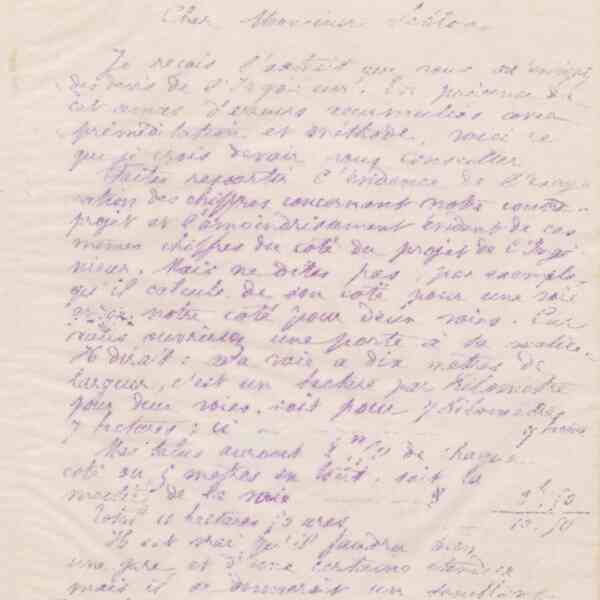 Cher Monsieur
Je reçois l'extrait que vous m'envoyez
des devis de l'Ingénieur. En présence de
cet amas d'erreurs accumulées avec
préméditation et méthode, voici ce
que je crois devoir vous conseiller
Faites ressortir l'évidence de l'exagé-
ration des chiffres concernant notre contre-
projet et l'amoindrissement évident de ces
mêmes chiffres du côté du projet de l'Ingé-
nieur. Mais ne dites pas, par exemple,
qu'il calcule de son côté pour une voie
notre côté pour deux voies. Car
vous ouvririez une porte à sa malice.
Il dirait: ma voie a dix mètres de
largeur, c'est un hectare par kilomètre
pour deux voies, soit pour 7 kilomètres
7 hectares; ci 7 hectares
Mes talus auront 2m,50 de chaque
côté ou 5 mètres en tout, soit la
moitié de la voie 3h,50
Total 10 hectares 50 ares 10,50
Il est vrai qu'il faudra bien
une gare et d'une certaine étendue
mais il se donnerait un semblant